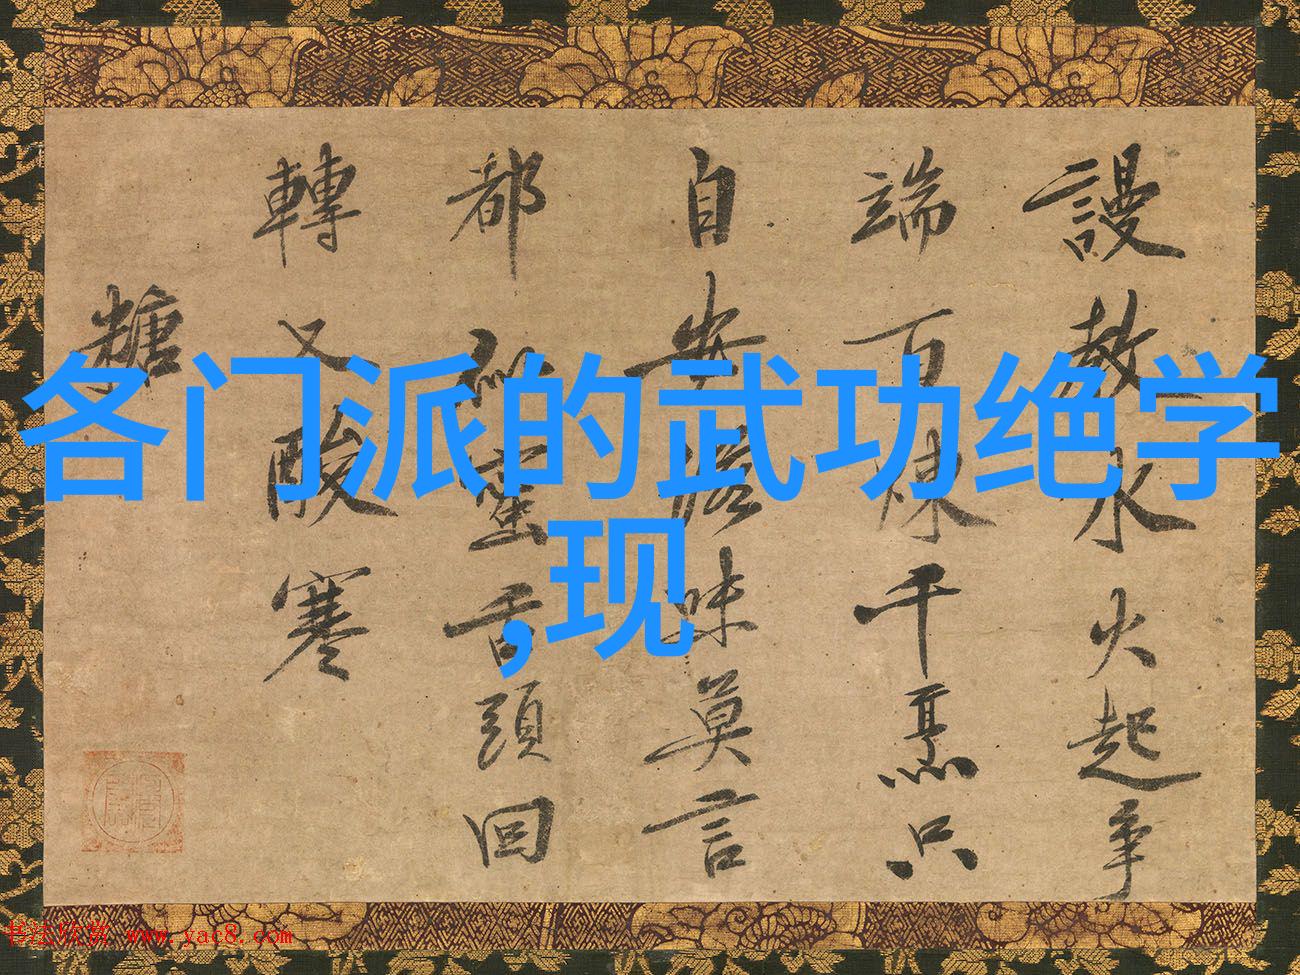 各门派的武功绝学
,现
謾教水火起争
端百煉千熏只
自安滋味莫言
都似蜜舌頭回
轉又酸寒
糖
书法欣赏 www.yac8.com